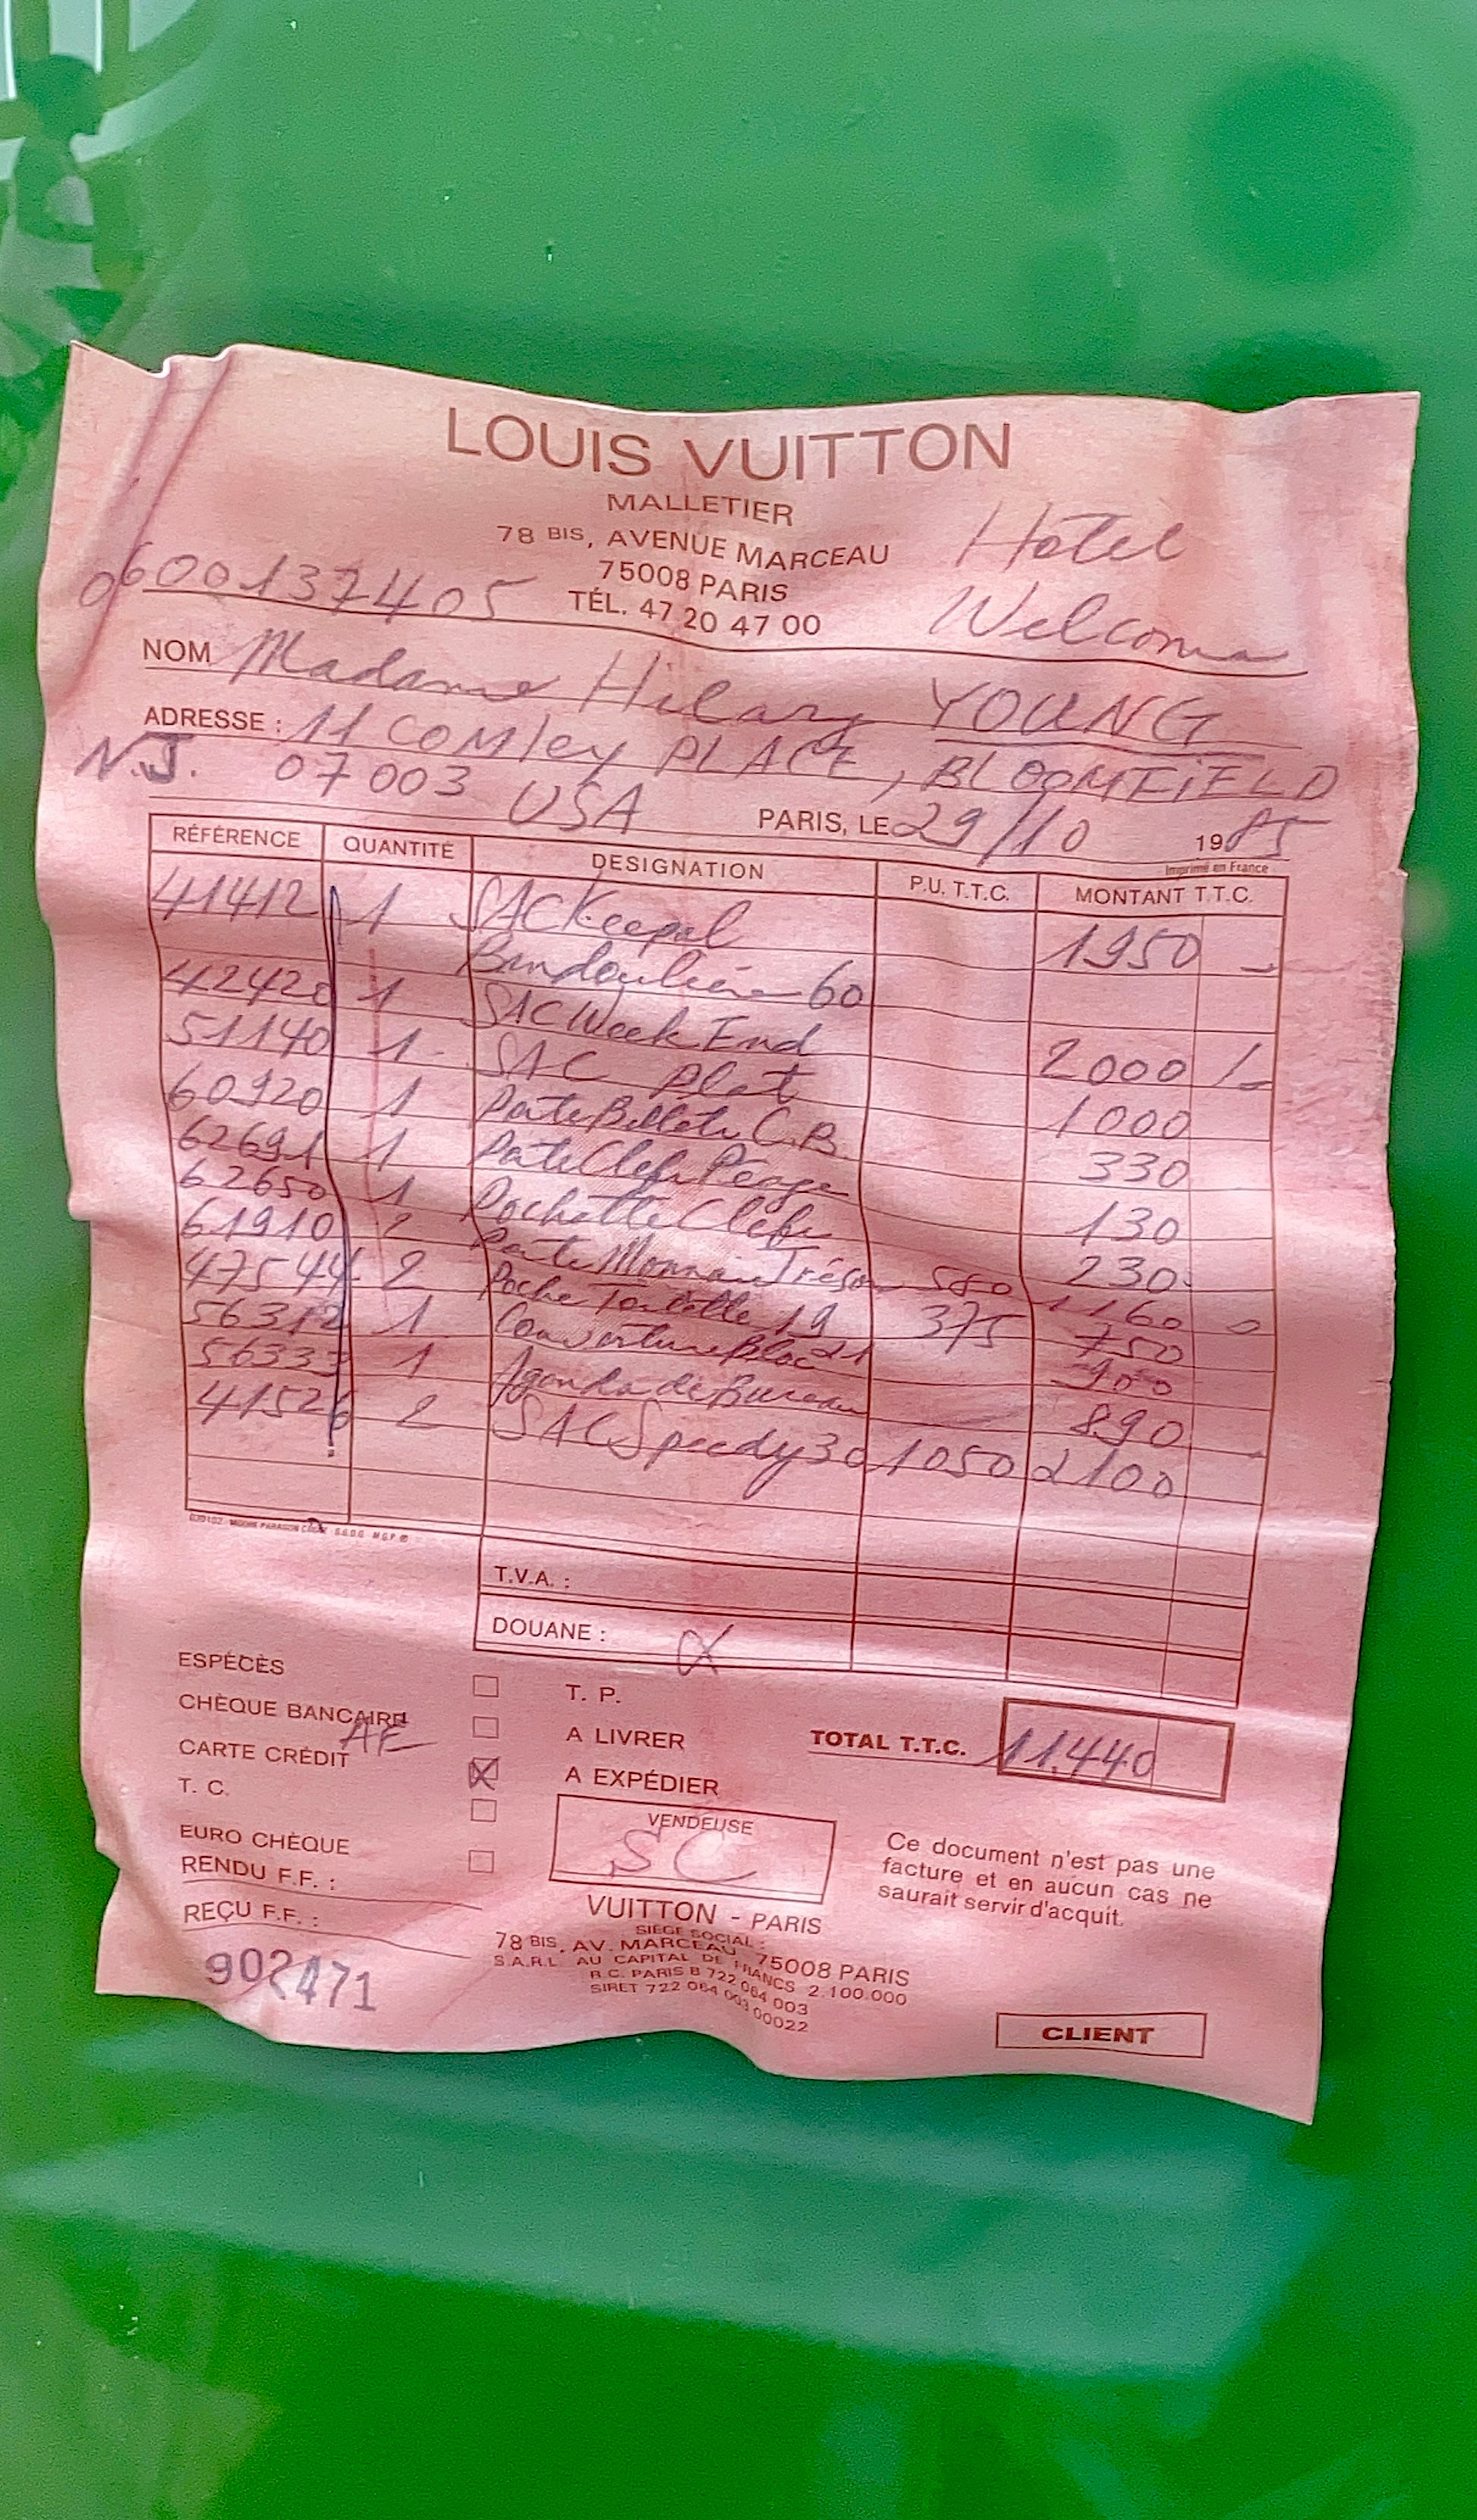 LOUIS VUITTON
MALLETIER
78 BIS, AVENUE MARCEAU
75008 PARIS
TÉL. 47 20 47 00
Hotel
Welcome
060013 7405
NOM Madame Hilary YOUNG
ADRESSE : 11 COMley PLACE, BLOOMFiELD
N.J. 07003 USA
PARIS, LE 29/10 1985
Imprimé en France
RÉFÉRENCE QUANTITÉ DESIGNATION P.U. T.T.C. MONTANT T.T.C.
41412 1 SAC Keepal 1950 -
Bandoulière 60
42420 1 SAC Week End 2000 -
51140 1 SAC Plat 1000
60920 1 Porte Billets C.B. 330
62691 1 Porte Clefs Péage 130
62650 1 Pochette Clefs 230
61910 2 Porte Monnaie Trésor 580 1160
47544 2 Poche Toilette 19 375 750
56312 1 Couverture Bloc 21 900
56333 1 Agenda de Bureau 890
41526 2 SAC Speedy 30 1050 2100
T.V.A. :
DOUANE :
ESPÉCÈS
CHÈQUE BANCAIRE
AE
CARTE CRÉDIT
T. C.
EURO CHÈQUE
RENDU F.F. :
REÇU F.F. :
902471
T. P.
A LIVRER
A EXPÉDIER
TOTAL T.T.C. 11.440
VENDEUSE
SC
Ce document n'est pas une
facture et en aucun cas ne
saurait servir d'acquit.
VUITTON - PARIS
SIÈGE SOCIAL :
78 BIS, AV. MARCEAU, 75008 PARIS
S.A.R.L. AU CAPITAL DE FRANCS 2.100.000
R.C. PARIS B 722 064 003
SIRET 722 064 003 00022
CLIENT